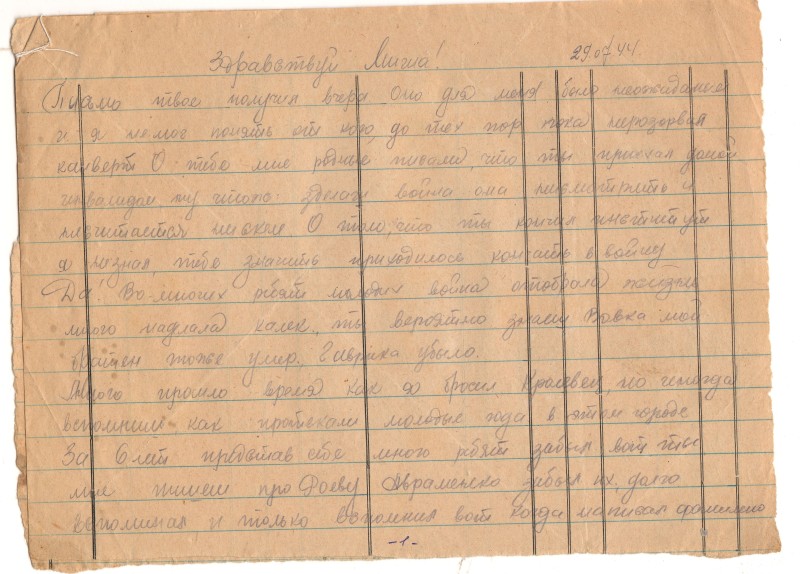 Здравствуй Миша! 29.07.44.
Письмо твое получил вчера Оно для меня было неожиданые
и я немог понять от кого, до тех пор пока неразорвал
канверт О тебе мне родные писали, что ты приехал домой
инвалидом, ну чтож зделаеш война она несмотрить и
несчитается ни скем. О том, что ты кончал институт
я незнал, тебе значить приходилось кончать в войну
Да! Во-многих ребят молодых война отобрала жизни
много наделала калек, ты вероятно знаеш Вовка мой
братен тоже умер, Гаврика убыло.
Много прошло время как я бросил Кролевец, но иногда
вспомниш как протекали молодые года в этом городе
За 6 лет представ себе много ребят забыл вот ты
мне пишеш про Фаеву Авраменко забыл их, долго
вспоминал и только вспомнил вот когда написал фамилию
-1-